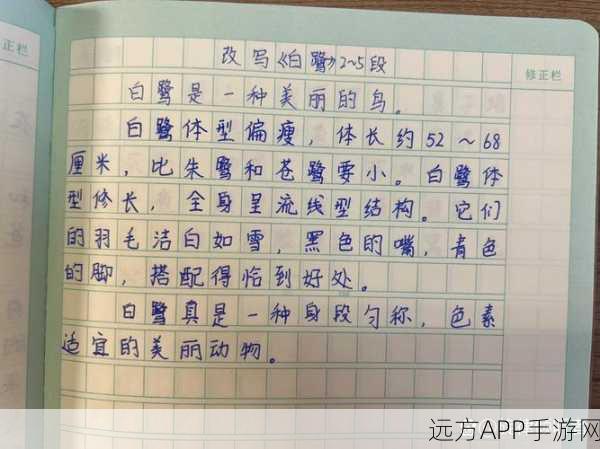 正栏
改写《白鹭》2~5段
修正栏
白鹭是一种美丽的鸟。
白鹭体型偏瘦，体长约52～68
厘米，比朱鹭和苍鹭要小。白鹭体
型修长，全身呈流线型结构。它们
的羽毛洁白如雪，黑色的嘴，青色
的脚，搭配得恰到好处。
白鹭真是一种身段匀称，色素
适宜的美丽动物。
远方APP手游网